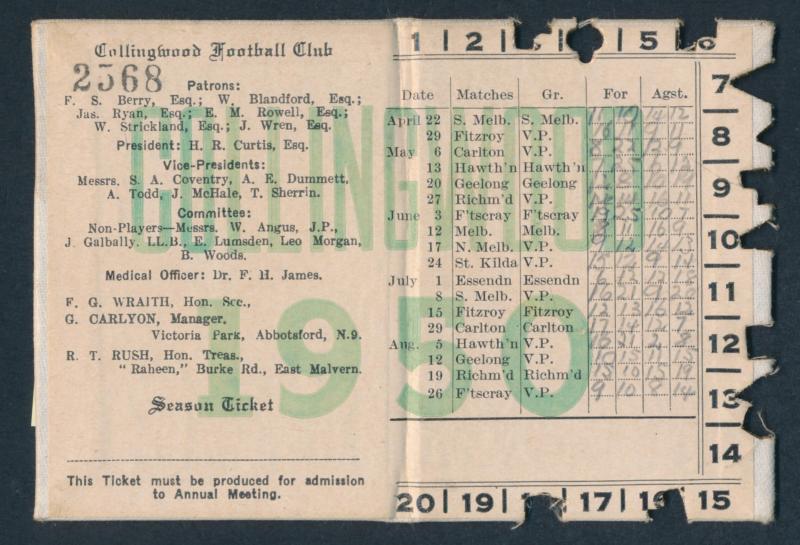 Collingwood Football Club
2568
Patrons:
F. S. Berry, Esq.; W. Blandford, Esq.;
Jas. Ryan, Esq.; E. M. Rowell, Esq.;
W. Strickland, Esq.; J. Wren, Esq.
President: H. R. Curtis, Esq.
Vice-Presidents:
Messrs. S. A. Coventry, A. E. Dummett,
A. Todd, J. McHale, T. Sherrin.
Committee:
Non-Players—Messrs. W. Angus, J.P.,
J. Galbally, LL.B., E. Lumsden, Leo Morgan,
B. Woods.
Medical Officer: Dr. F. H. James.
F. G. WRAITH, Hon. Sec.,
G. CARLYON, Manager,
Victoria Park, Abbotsford, N.9.
R. T. RUSH, Hon. Treas.,
"Raheen," Burke Rd., East Malvern.
Season Ticket
This Ticket must be produced for admission
to Annual Meeting.
COLLINGWOOD
1950
1 2 5 6
Date Matches Gr. For Agst.
April 22 S. Melb. S. Melb.
29 Fitzroy V.P.
May 6 Carlton V.P.
13 Hawth'n Hawth'n
20 Geelong Geelong
27 Richm'd V.P.
June 3 F'tscray F'tscray
12 Melb. Melb.
17 N. Melb. V.P.
24 St. Kilda V.P.
July 1 Essendn Essendn
8 S. Melb. V.P.
15 Fitzroy Fitzroy
29 Carlton Carlton
Aug. 5 Hawth'n V.P.
12 Geelong V.P.
19 Richm'd Richm'd
26 F'tscray V.P.
7
8
9
10
11
12
13
14
20 19 17 16 15